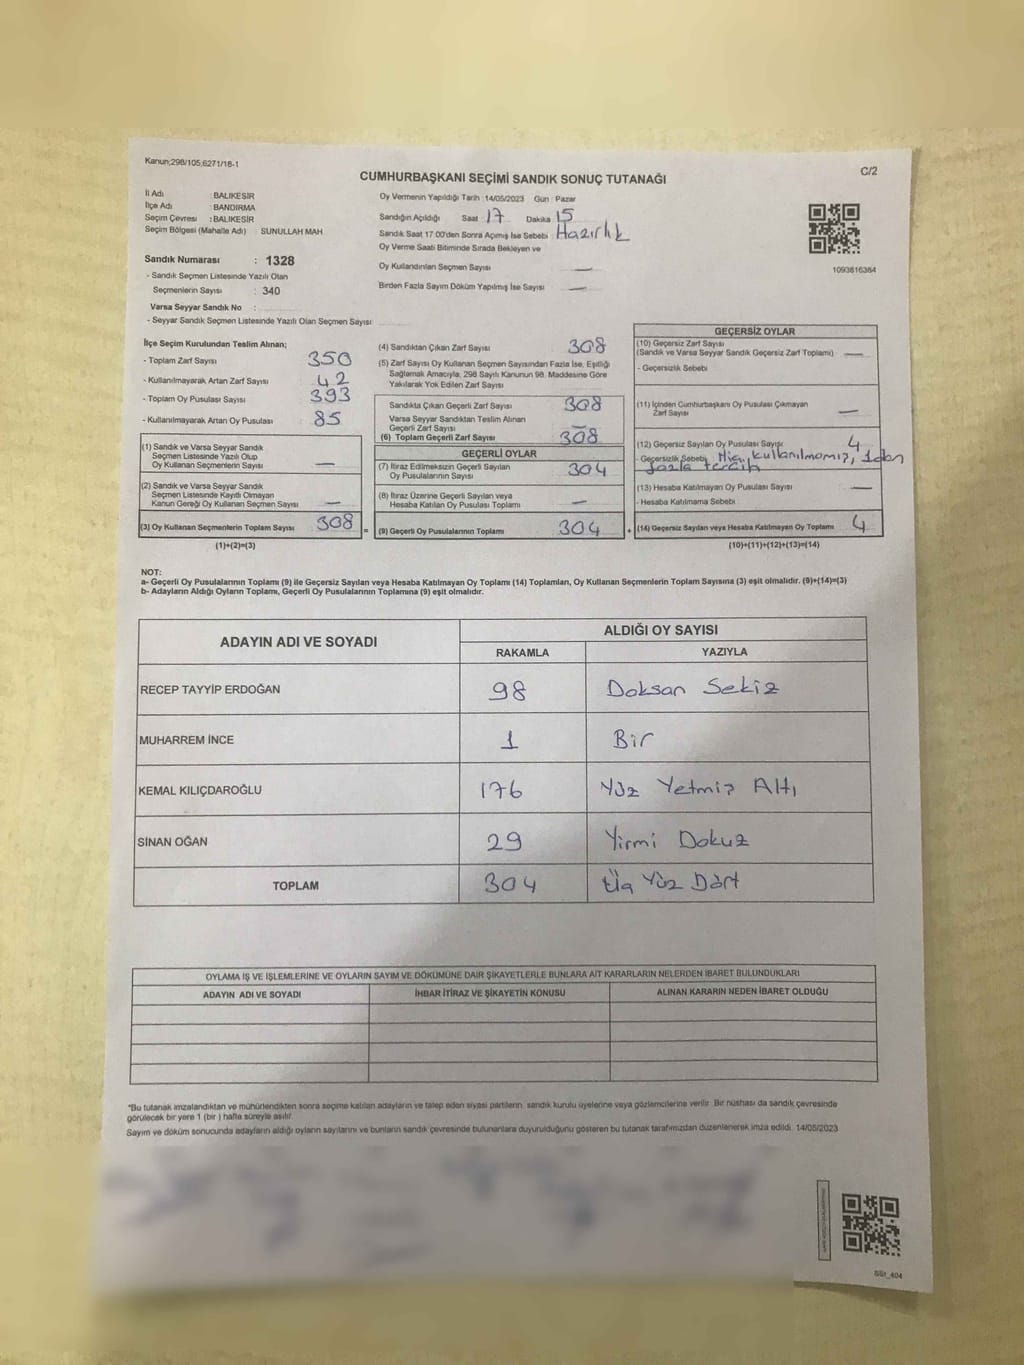 Kanun;298/105;6271/18-1
C/2
CUMHURBAŞKANI SEÇİMİ SANDIK SONUÇ TUTANAĞI
İl Adı : BALIKESİR
İlçe Adı : BANDIRMA
Seçim Çevresi : BALIKESİR
Seçim Bölgesi (Mahalle Adı) SUNULLAH MAH
Sandık Numarası : 1328
- Sandık Seçmen Listesinde Yazılı Olan
Seçmenlerin Sayısı : 340
Varsa Seyyar Sandık No :
- Seyyar Sandık Seçmen Listesinde Yazılı Olan Seçmen Sayısı:
Oy Vermenin Yapıldığı Tarih :14/05/2023 Gün : Pazar
Sandığın Açıldığı Saat 17 Dakika 15
Sandık Saat 17:00'den Sonra Açılmış İse Sebebi : Hazırlık
Oy Verme Saati Bitiminde Sırada Bekleyen ve
Oy Kullandırılan Seçmen Sayısı —
Birden Fazla Sayım Döküm Yapılmış İse Sayısı —
1093816384
İlçe Seçim Kurulundan Teslim Alınan;
- Toplam Zarf Sayısı 350
- Kullanılmayarak Artan Zarf Sayısı 42
- Toplam Oy Pusulası Sayısı 393
- Kullanılmayarak Artan Oy Pusulası 85
(1) Sandık ve Varsa Seyyar Sandık
Seçmen Listesinde Yazılı Olup
Oy Kullanan Seçmenlerin Sayısı —
(2) Sandık ve Varsa Seyyar Sandık
Seçmen Listesinde Kayıtlı Olmayan
Kanun Gereği Oy Kullanan Seçmen Sayısı —
(3) Oy Kullanan Seçmenlerin Toplam Sayısı 308 =
(1)+(2)=(3)
(4) Sandıktan Çıkan Zarf Sayısı 308
(5) Zarf Sayısı Oy Kullanan Seçmen Sayısından Fazla İse, Eşitliği
Sağlamak Amacıyla, 298 Sayılı Kanunun 98. Maddesine Göre
Yakılarak Yok Edilen Zarf Sayısı
Sandıkta Çıkan Geçerli Zarf Sayısı 308
Varsa Seyyar Sandıktan Teslim Alınan
Geçerli Zarf Sayısı —
(6) Toplam Geçerli Zarf Sayısı 308
GEÇERLİ OYLAR
(7) İtiraz Edilmeksizin Geçerli Sayılan
Oy Pusulalarının Sayısı 304
(8) İtiraz Üzerine Geçerli Sayılan veya
Hesaba Katılan Oy Pusulası Toplamı —
(9) Geçerli Oy Pusulalarının Toplamı 304 +
GEÇERSİZ OYLAR
(10) Geçersiz Zarf Sayısı
(Sandık ve Varsa Seyyar Sandık Geçersiz Zarf Toplamı) —
- Geçersizlik Sebebi
(11) İçinden Cumhurbaşkanı Oy Pusulası Çıkmayan
Zarf Sayısı —
(12) Geçersiz Sayılan Oy Pusulası Sayısı 4
- Geçersizlik Sebebi Hiç kullanılmamış, 1den
fazla tercih
(13) Hesaba Katılmayan Oy Pusulası Sayısı —
- Hesaba Katılmama Sebebi
(14) Geçersiz Sayılan veya Hesaba Katılmayan Oy Toplamı 4
(10)+(11)+(12)+(13)=(14)
NOT:
a- Geçerli Oy Pusulalarının Toplamı (9) ile Geçersiz Sayılan veya Hesaba Katılmayan Oy Toplamı (14) Toplamları, Oy Kullanan Seçmenlerin Toplam Sayısına (3) eşit olmalıdır. (9)+(14)=(3)
b- Adayların Aldığı Oyların Toplamı, Geçerli Oy Pusulalarının Toplamına (9) eşit olmalıdır.
ADAYIN ADI VE SOYADI
ALDIĞI OY SAYISI
RAKAMLA YAZIYLA
RECEP TAYYİP ERDOĞAN 98 Doksan Sekiz
MUHARREM İNCE 1 Bir
KEMAL KILIÇDAROĞLU 176 Yüz Yetmiş Altı
SİNAN OĞAN 29 Yirmi Dokuz
TOPLAM 304 Üç Yüz Dört
OYLAMA İŞ VE İŞLEMLERİNE VE OYLARIN SAYIM VE DÖKÜMÜNE DAİR ŞİKAYETLERLE BUNLARA AİT KARARLARIN NELERDEN İBARET BULUNDUKLARI
ADAYIN ADI VE SOYADI İHBAR İTİRAZ VE ŞİKAYETİN KONUSU ALINAN KARARIN NEDEN İBARET OLDUĞU
*Bu tutanak imzalandıktan ve mühürlendikten sonra seçime katılan adayların ve talep eden siyasi partilerin, sandık kurulu üyelerine veya gözlemcilerine verilir. Bir nüshası da sandık çevresinde
görülecek bir yere 1 (bir) hafta süreyle asılır.
Sayım ve döküm sonucunda adayların aldığı oyların sayılarını ve bunların sandık çevresinde bulunanlara duyurulduğunu gösteren bu tutanak tarafımızdan düzenlenerek imza edildi. 14/05/2023
SSt_404